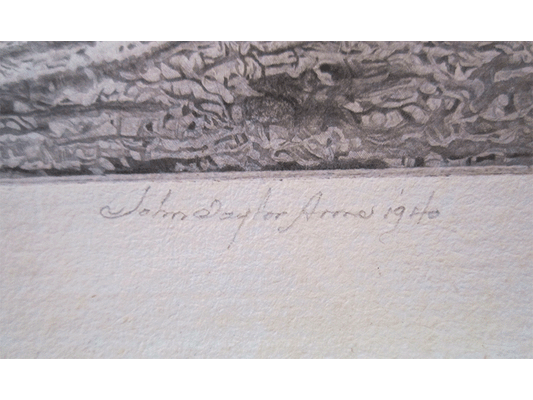 John Taylor Arms 1940